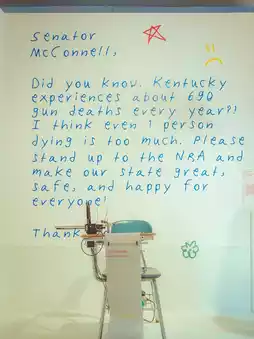 Senator
McConnell,
Did you know. Kentucky
experiences about 690
gun deaths every year?!
I think even 1 person
dying is too much. Please
stand up to the NRA and
make our state great,
safe, and happy for
everyone!
Thank